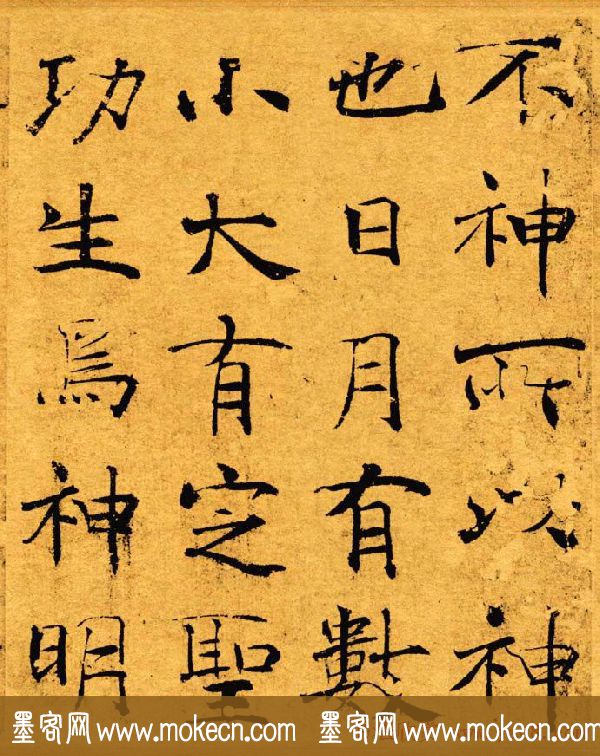 不神所以神
也日月有數
小大有定聖
功生焉神明
墨客网 www.mokecn.com 墨客网 www.mokecn.com